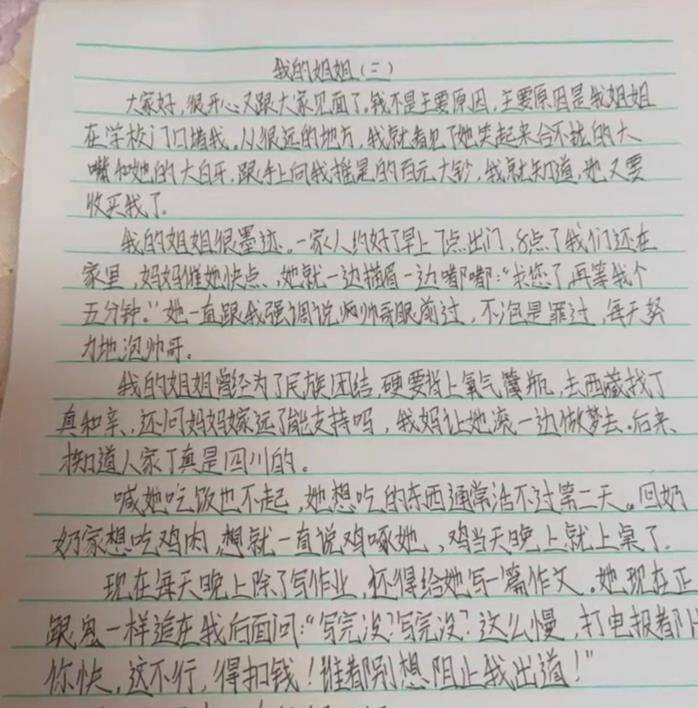 我的姐姐(二)
大家好,很开心又跟大家见面了,我不是主要原因,主要原因是我姐姐
在学校门口堵我。从很远的地方,我就看见了她笑起来合不拢的大
嘴和她的大白牙,跟手上向我摇晃的百元大钞,我就知道,她又要
收买我了。
我的姐姐很墨迹。一家人约好了早上7点出门,8点了我们还在
家里,妈妈催她快点、她就一边描眉一边嘟嘟:“求您了,再等我个
五分钟。”她一直跟我强调说,帅哥眼前过,不泡是罪过,每天努
力地泡帅哥。
我的姐姐曾经为了民族团结,硬要背上氧气罐瓶,去西藏找丁
真和亲、还问妈妈嫁远了能支持吗,我妈让她滚一边做梦去。后来、
才知道人家丁真是四川的。
喊她吃饭也不起,她想吃的东西通常活不过第二天。回奶
奶家想吃鸡肉,想就一直说鸡啄她,鸡当天晚上就上桌了。
现在每天晚上除了写作业,还得给她写一篇作文。她现在正
跟鬼一样追在我后面问:“写完没?写完没?这么慢,打电报都比
你快,这不行,得扣钱!谁都别想阻止我出道!”